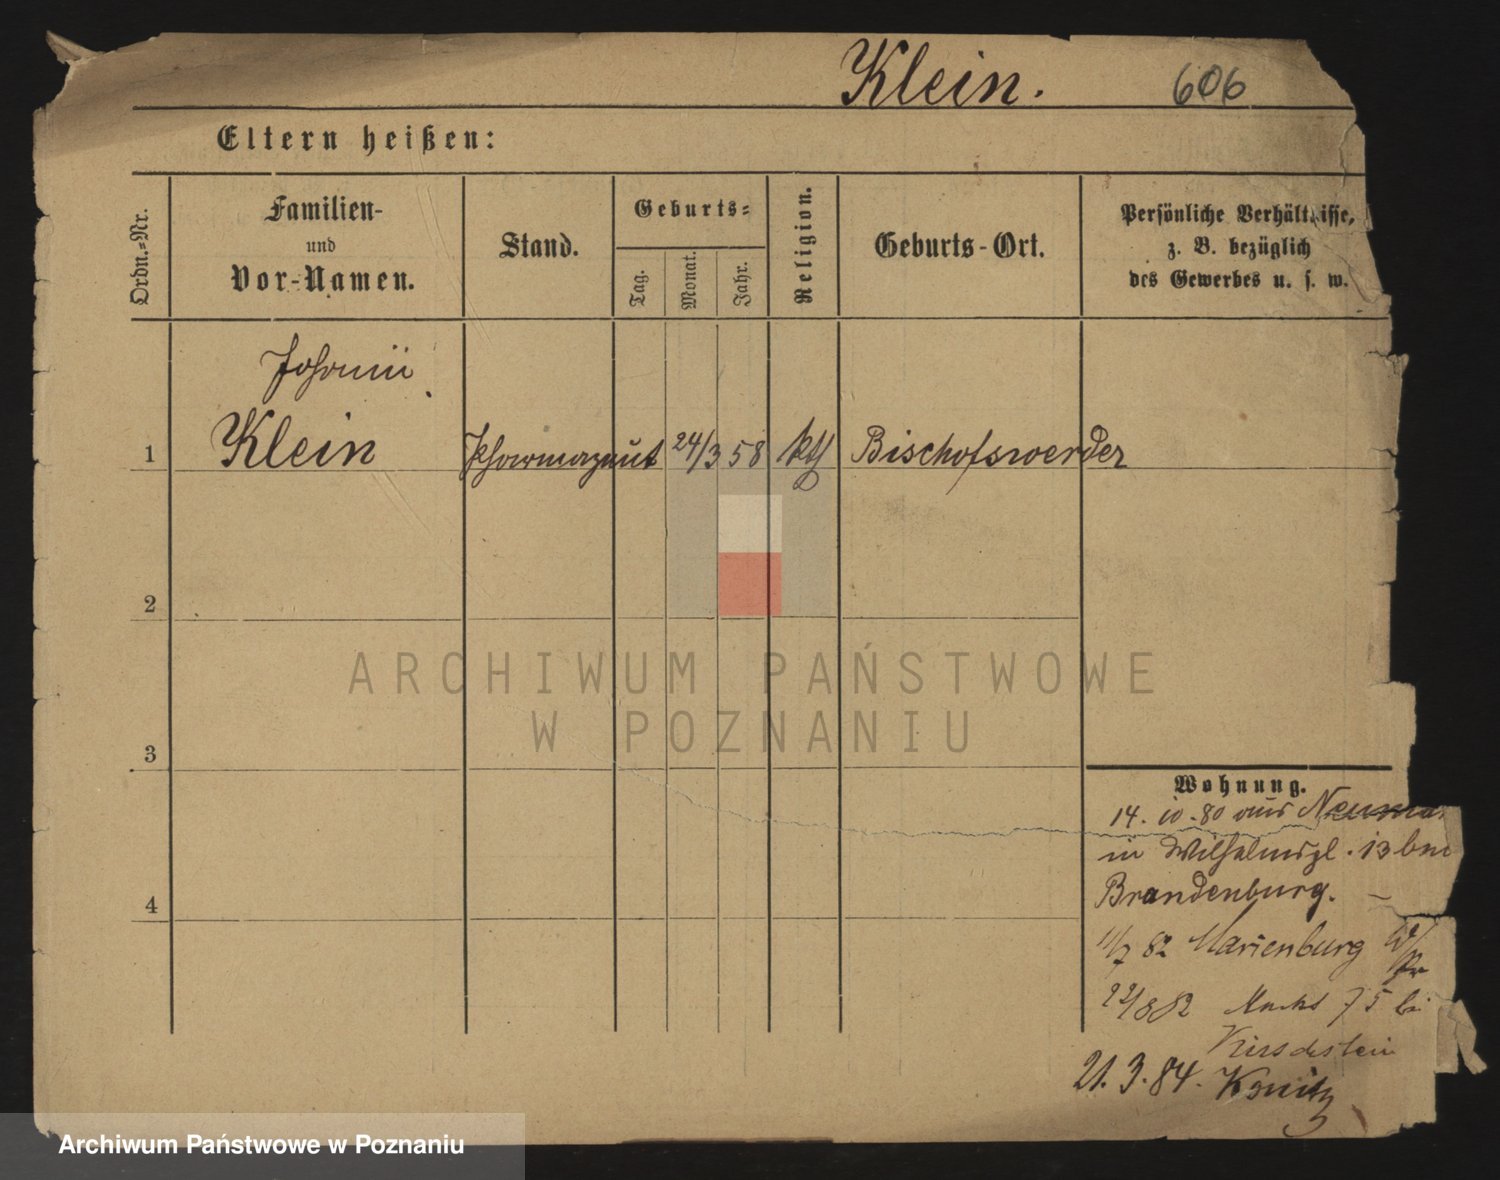 Klein.
606
Eltern heißen:
Ordn.-Nr.
Familien-
und
Vor-Namen.
Stand.
Geburts-
Tag.
Monat.
Jahr.
Religion.
Geburts-Ort.
Persönliche Verhältnisse,
z. B. bezüglich
des Gewerbes u. s. w.
1
Klein
Pharmazeut
24/3 58
kth
Bischofswerder
2
ARCHIWUM PAŃSTWOWE
W POZNANIU
3
Wohnung.
14. 10. 80 aus
in Wilhelmspl. 13 bei
4
Brandenburg.
11/7 82 Marienburg W/Pr
22/8 82 75 bei
21. 3. 84. Konitz
Archiwum Państwowe w Poznaniu